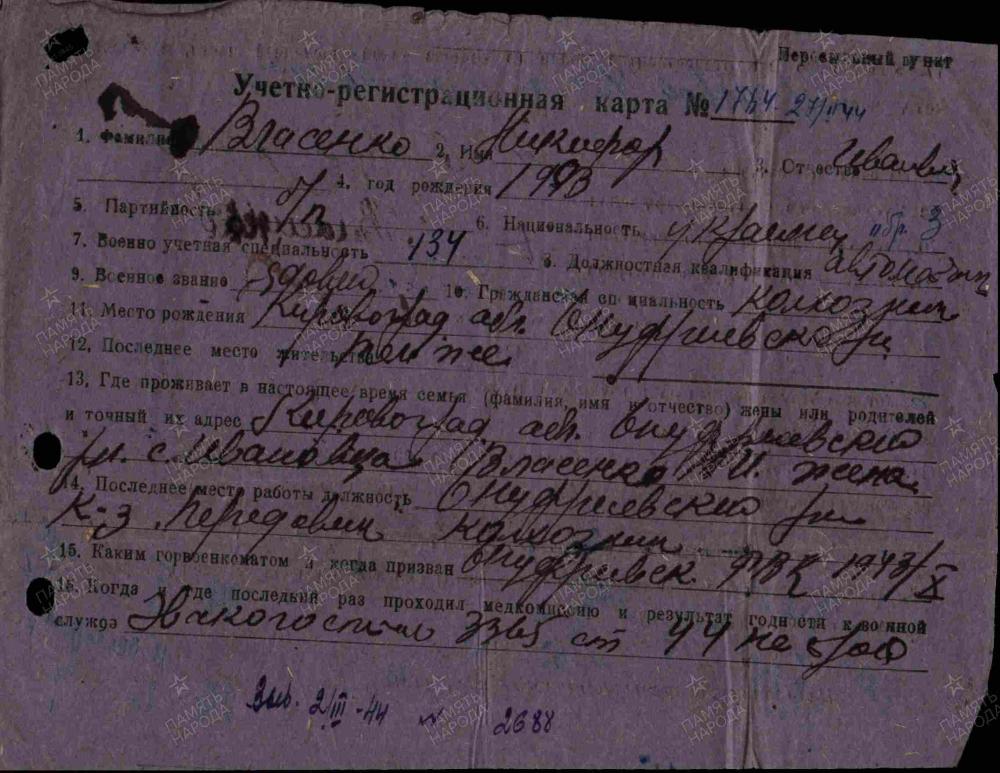 Пересыльный пункт
Учетно-регистрационная карта № 1784 27/II 44
1. Фамилия Власенко 2. Имя Никифор 3. Отчество Иванович
4. год рождения 1903
5. Партийность б/п 6. Национальность украинец обр. 3
7. Военно учетная специальность 134 8. Должностная квалификация
9. Военное звание рядовой 10. Гражданская специальность колхозник
11. Место рождения Кировоград обл. Онуфриевского р-н
12. Последнее место жительства там же
13. Где проживает в настоящее время семья (фамилия, имя и отчество) жены или родителей
и точный их адрес Кировоград обл. Онуфриевского
рн. с. Ивановка Власенко И. жена
14. Последнее место работы должность Онуфриевского рн
к-з Передовик колхозник
15. Каким горвоенкоматом и когда призван Онуфриевск. РВК 1943/X
16. Когда и где последний раз проходил медкомиссию и результат годности к военной
службе 3365 44
Выб. 2/III-44 № 2688
ПАМЯТЬ НАРОДА